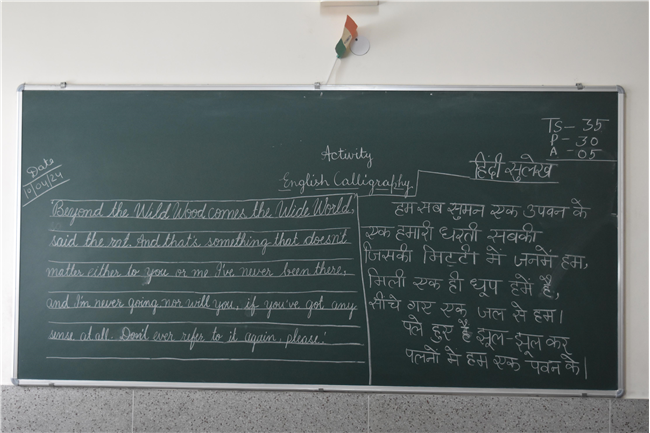 Date
10/04/24
Activity
English Calligraphy
Beyond the Wild Wood comes the Wide World,
said the rat. And that's something that doesn't
matter either to you or me I've never been there,
and I'm never going nor will you, if you've got any
sense at all. Don't ever refer to it again, please!
TS - 35
P - 30
A - 05
हिंदी सुलेख
हम सब सुमन एक उपवन के
एक हमारी धरती सबकी
जिसकी मिटटी में जनमें हम,
मिली एक ही धूप हमें है,
सींचे गए एक जल से हम।
पले हुए हैं झूल-झूल कर
पलनों में हम एक पवन के।